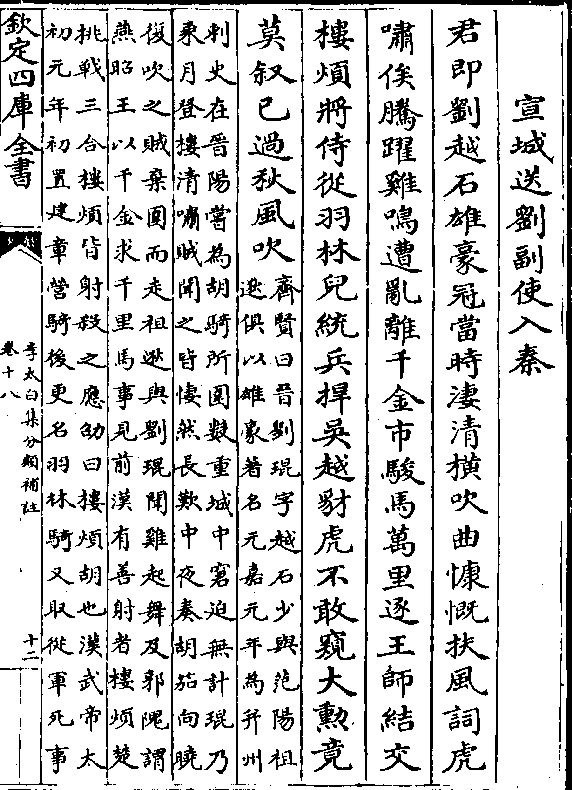 宣城送劉副使入秦
君即劉越石雄豪冠當時淒清橫吹曲慷慨扶風詞虎
嘯俟騰躍雞鳴遭亂離千金市駿馬萬里逐王師結交
樓煩將侍從羽林兒統兵捍吳越豺虎不敢窺大勲竟
莫叙已過秋風吹
齊賢曰晉劉琨字越石少與范陽祖
逖俱以雄豪著名元嘉元年為并州
刺史在晉陽嘗為胡騎所圍數重城中窘迫無計琨乃
乘月登樓清嘯賊聞之皆悽然長歎中夜奏胡笳向曉
復吹之賊棄圍而走祖逖與劉琨聞雞起舞及郭隗謂
燕昭王以千金求千里馬事見前漢有善射者樓煩楚
挑戰三合樓煩皆射殺之應劭曰樓煩胡也漢武帝太
初元年初置建章營騎後更名羽林騎又取從軍死事
欽定四庫全書
李太白集分類補註
卷十八
十二